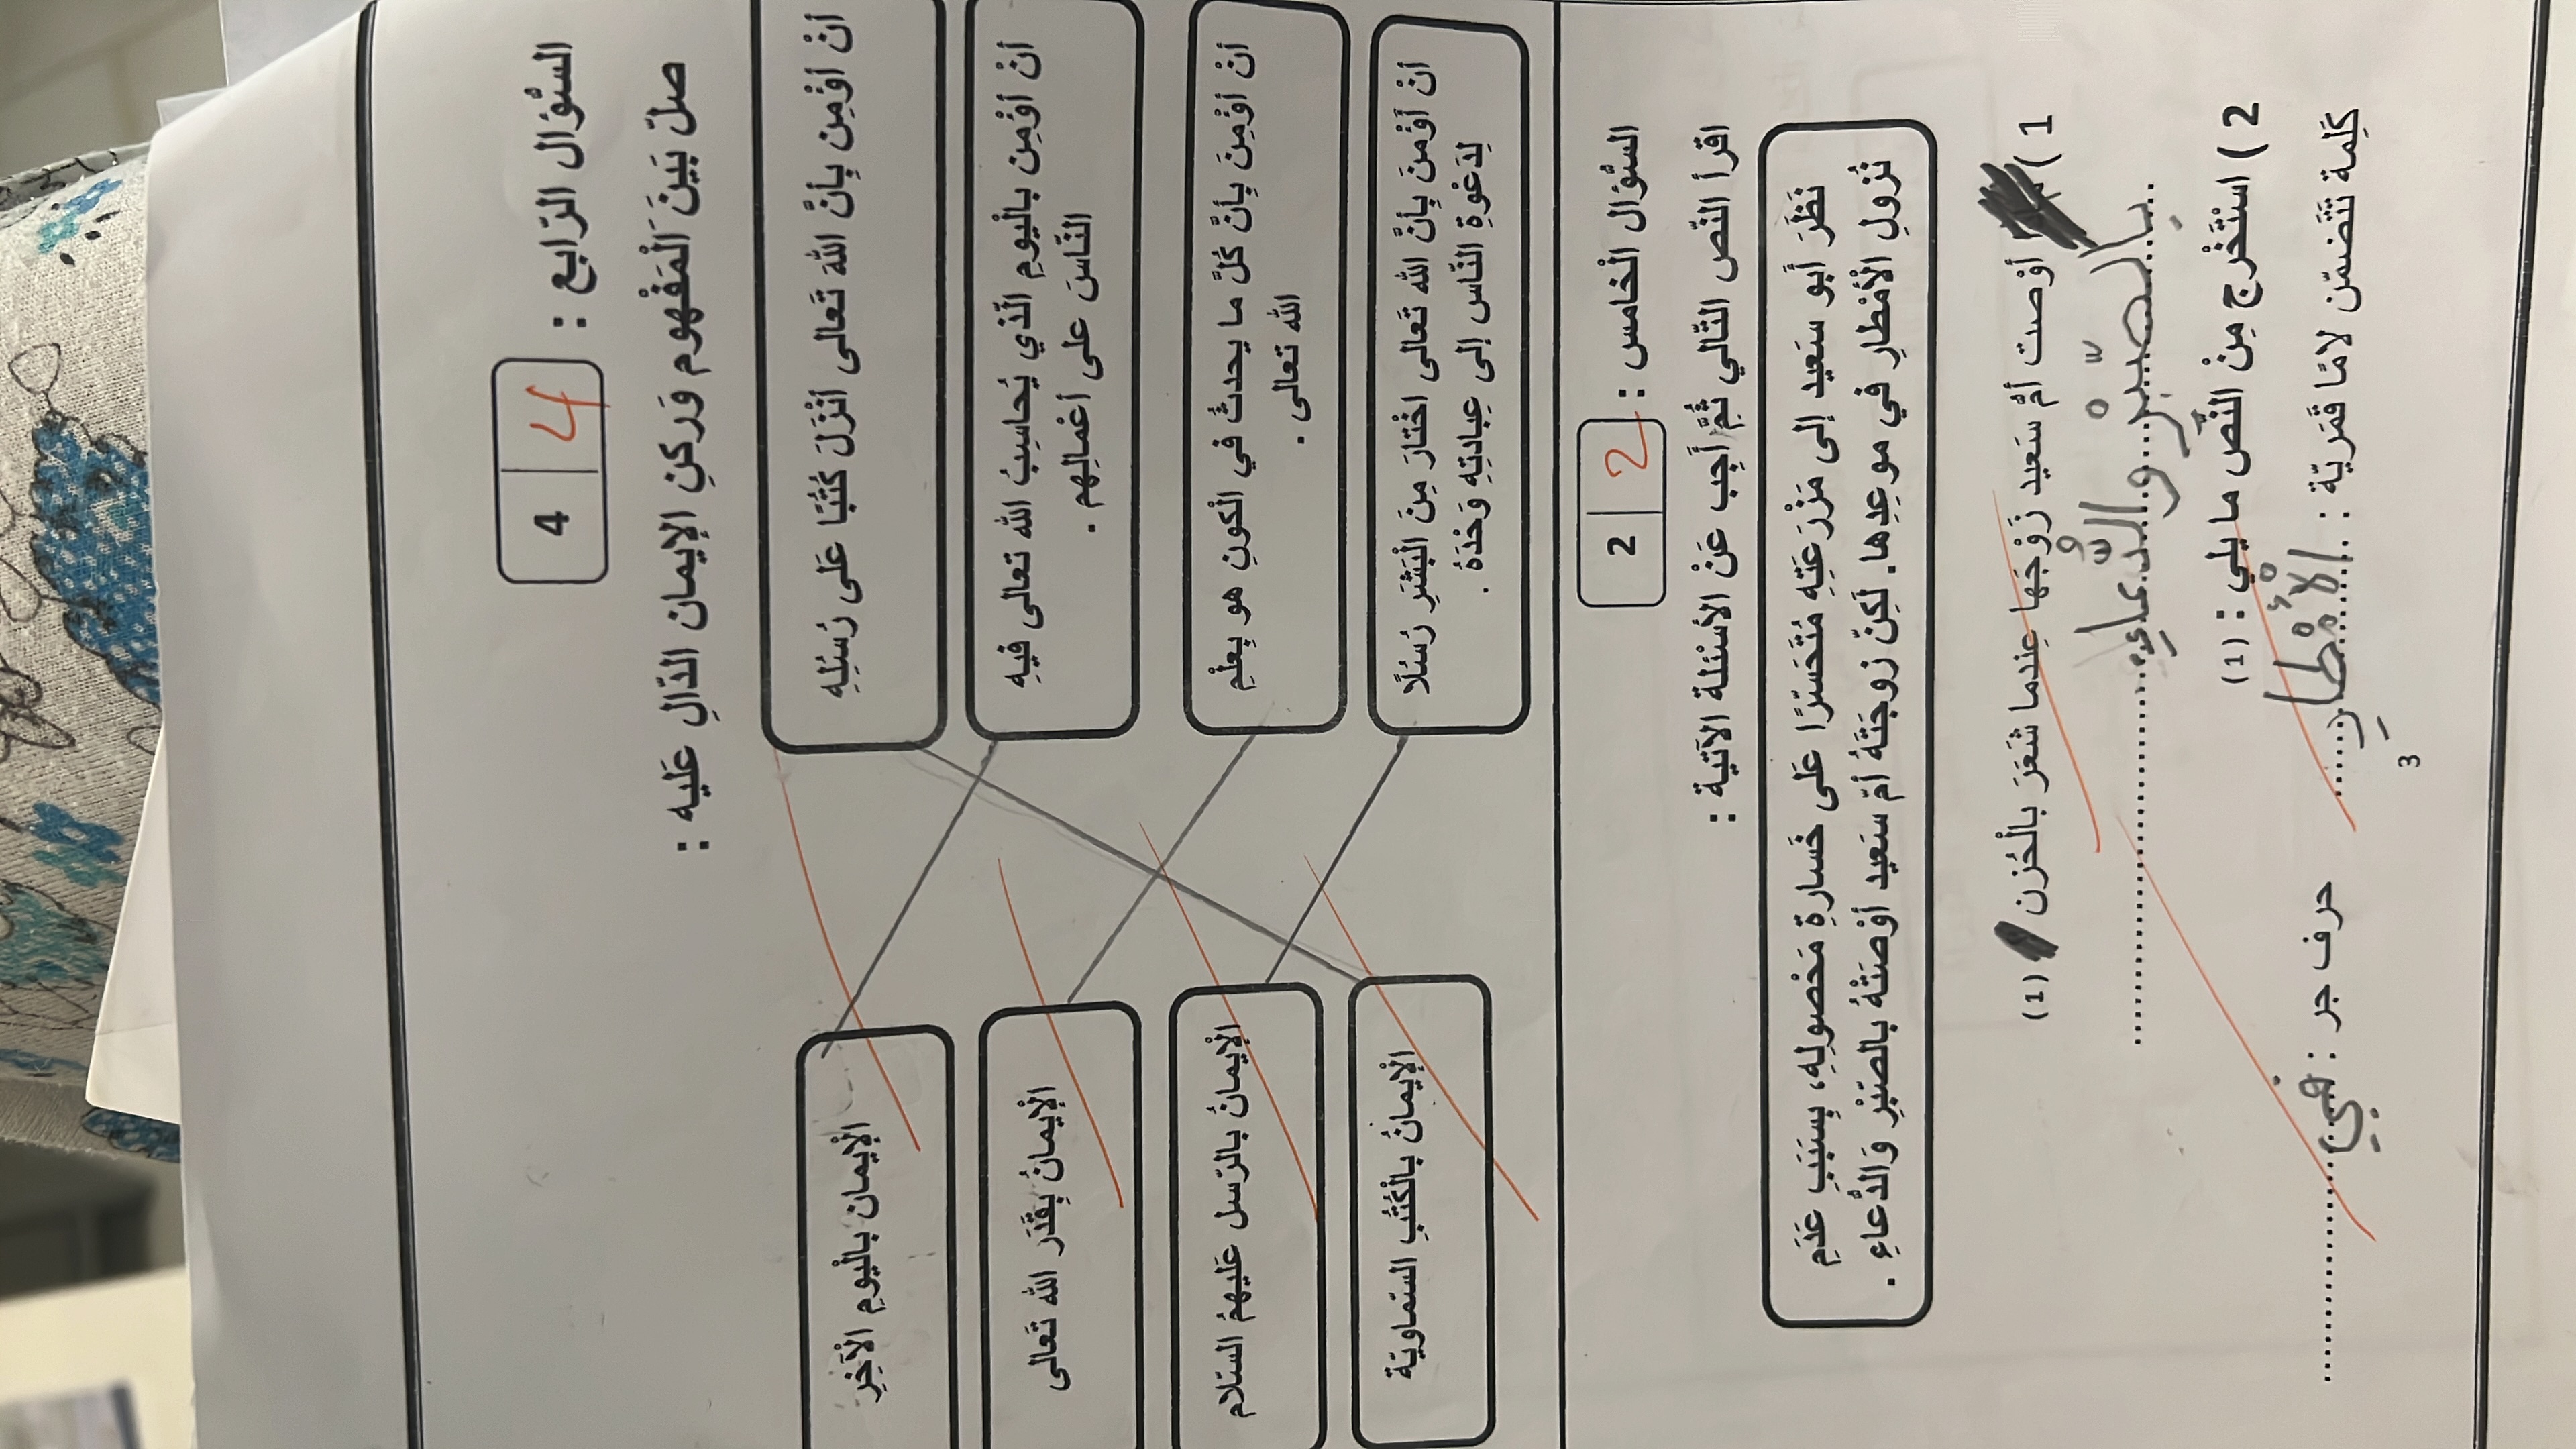 السُّؤال الرّابع :
4
4
صلّ بَينَ الْمَفْهوم وَركنِ الإيمان الدّالِ عَليه :
أنْ أؤْمِن بِأنَّ اللهَ تَعَالى أنْزَلَ كُتُبًا عَلى رُسُلِهِ
الإيمان باليْومِ الْآخِرِ
أنْ أؤْمِن باليْومِ الّذي يُحاسِبُ الله تعالى فيهِ
النّاسَ على أعْمالِهم .
الإيمانُ بِقَدَر الله تَعَالى
أنْ أؤْمِنَ بِأنَّ كُلَّ ما يحدثُ في الْكونِ هو بِعِلْمِ
الله تعالى .
الإيمانُ بالرّسل عَليهمُ السّلام
أنْ أؤْمنَ بِأنَّ الله تَعالى اخْتارَ مِنَ الْبَشَرِ رُسُلًا
لِدَعْوةِ النّاس إلى عِبادتِهِ وَحْدَهُ .
الإيمانُ بالْكُتُبِ السّماويّة
السّؤال الْخامس :
2
2
اقرأ النّص التّالي ثُمَّ أَجِب عَنْ الأسْئلة الآتية :
نَظَرَ أَبو سَعيد إلى مَزْرَعَتِهِ مُتَحَسّرًا عَلى خَسارةِ مَحْصولِهِ، بِسَبَبِ عَدَمِ
نُزولِ الأمْطارِ في موعِدِها. لَكِنّ زوجَتَهُ أمّ سَعيد أوْصَتْهُ بالصّبْرِ وَالدُّعاءِ .
1 ) أوْصت أمّ سَعيد زَوْجَها عِندما شَعَرَ بالْحُزن (1)
بِالصّبْرِ والدُّعاءِ
2 ) اسْتَخْرج مِن النّص ما يلي : (1)
كَلِمة تَتَضمّن لامًا قمَريّة : الأمْطارِ حرف جر : في
3